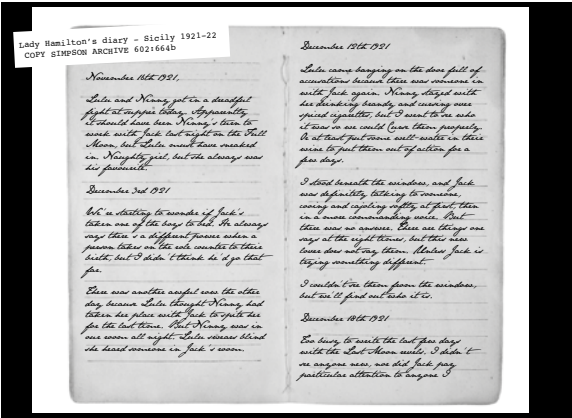 Lady Hamilton's diary – Sicily 1921-22
COPY SIMPSON ARCHIVE 602:664b
November 16th 1921,
Lulu and Ninny got in a dreadful
fight at supper today. Apparently
it should have been Ninny's turn to
work with Jack last night on the Full
Moon, but Lulu must have sneaked
in. Naughty girl, but she always was
his favourite.
December 3rd 1921
We're starting to wonder if Jack's
taken one of the boys to bed. He always
says there's a different power when a
person takes on the role counter to their
birth, but I didn't think he'd go that
far.
There was another awful row the other
day because Lulu thought Ninny had
taken her place with Jack to spite her
for the last time. But Ninny was in
our room all night. Lulu swears blind
she heard someone in Jack's room.
December 12th 1921
Lulu came banging on the door full of
accusations because there was someone in
with Jack again. Ninny stayed with
her drinking brandy and cursing over
spiced cigarettes, but I went to see who
it was so we could Curse them properly.
Or at least put some well-water in their
wine to put them out of action for a
few days.
I stood beneath the window, and Jack
was definitely talking to someone,
cooing and cajoling softly at first, then
in a more commanding voice. But
there was no answer. There are things one
says at the right times, but this new
lover does not say them. Unless Jack is
trying something different.
I couldn't see them from the window,
but we'll find out who it is.
December 18th 1921
Too busy to write the last few days
with the Last Moon revels. I didn't
see anyone new, nor did Jack pay
particular attention to anyone I